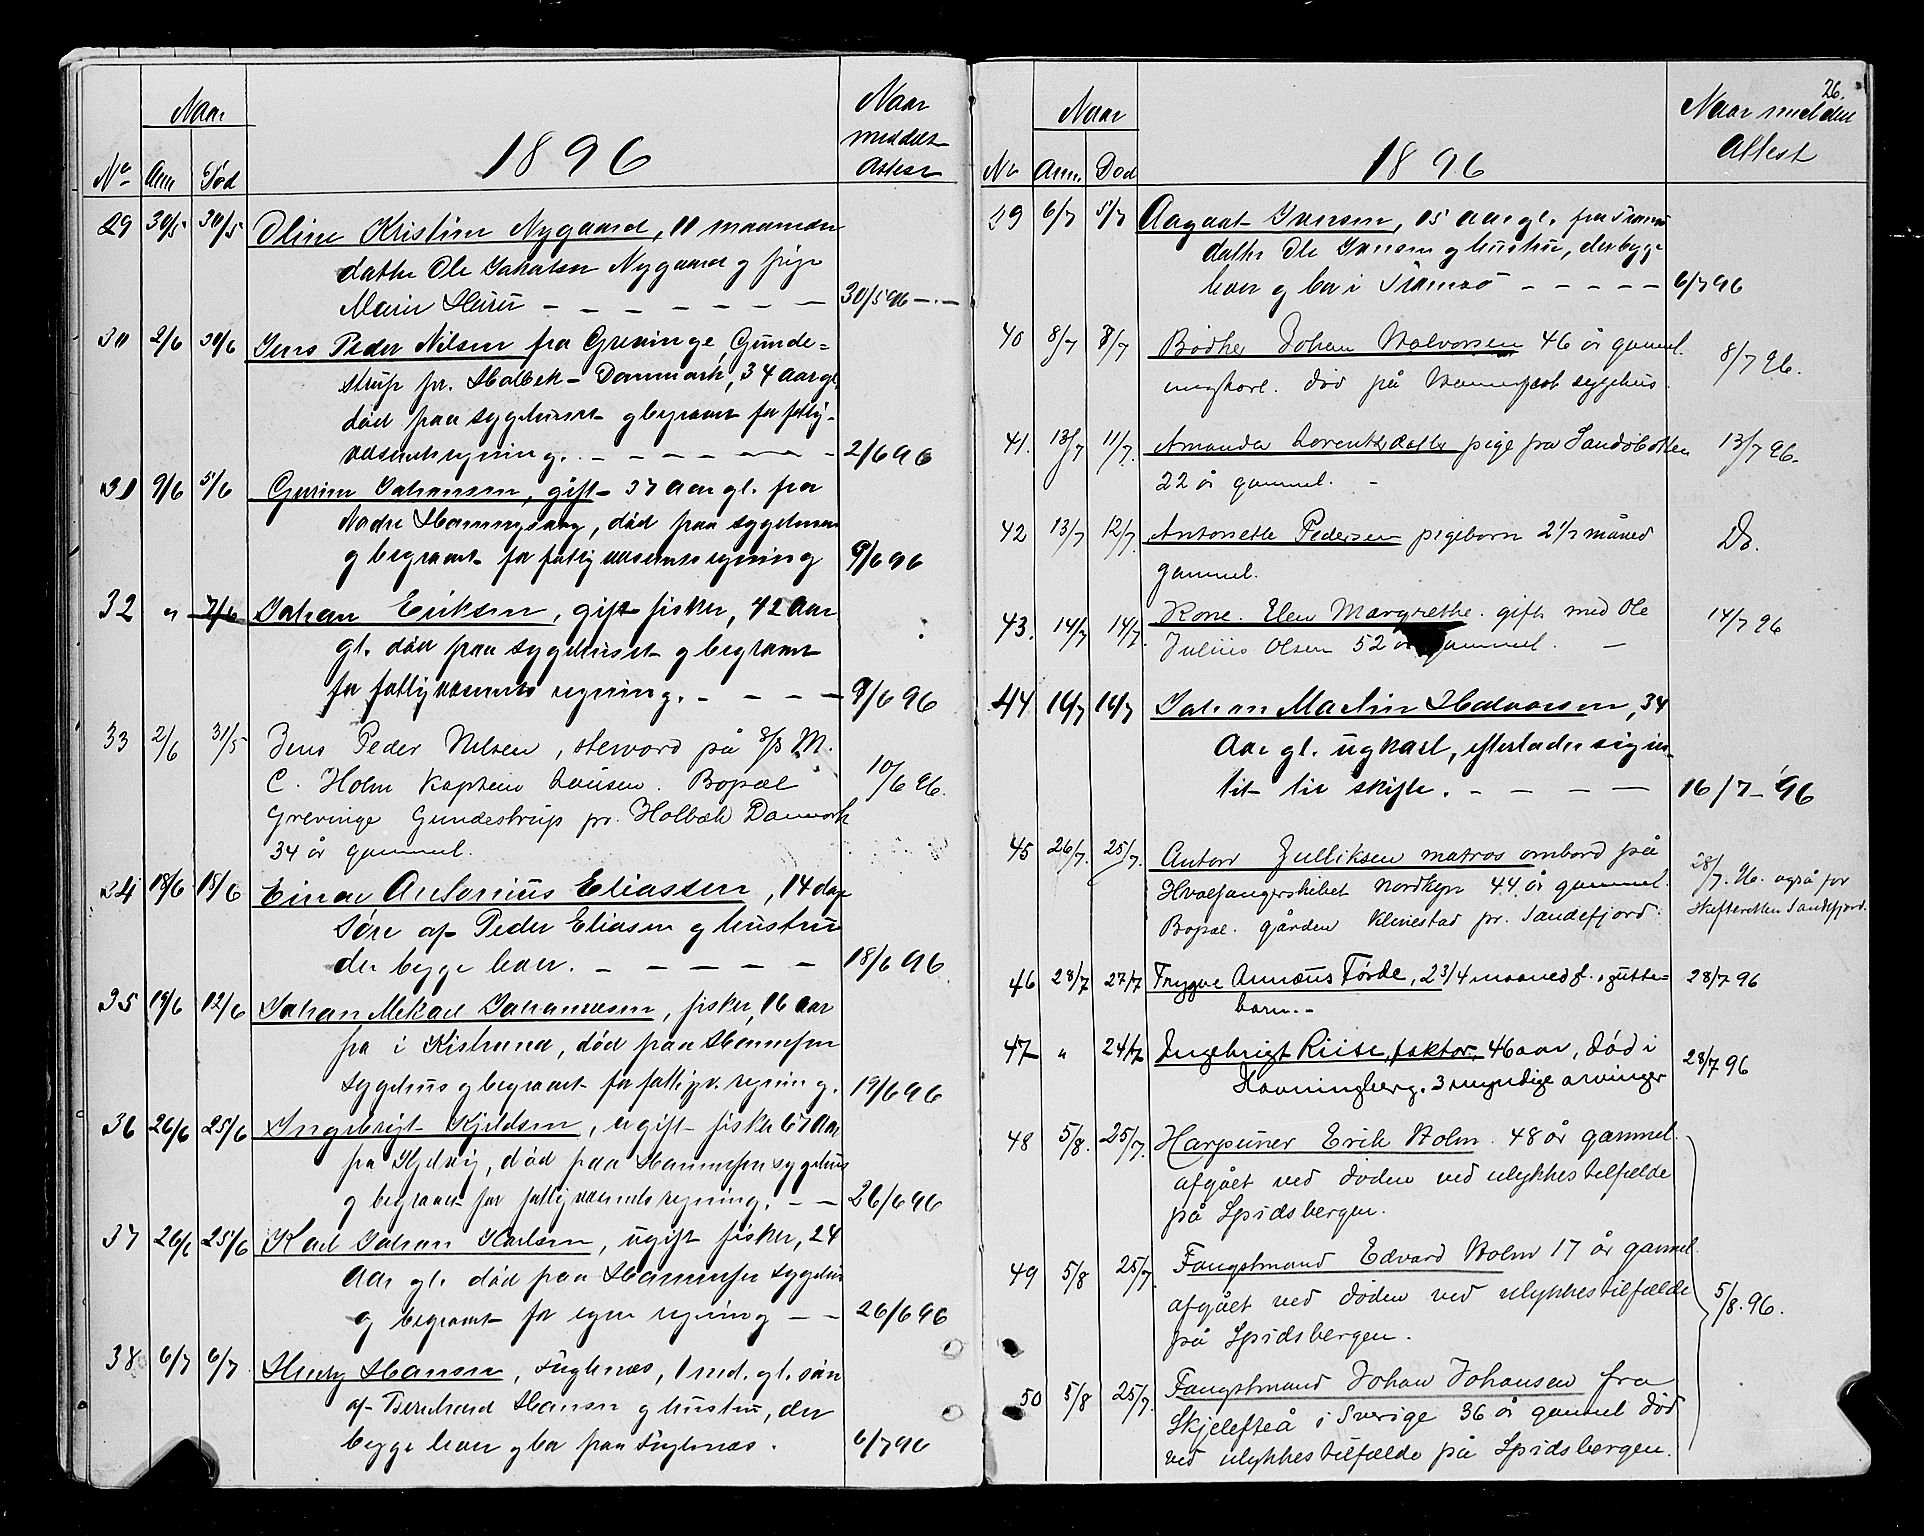 Naar
1896
Naar
meddelt
Attest
No Anm Død
29 30/5 30/5 Oline Kristine Nygaard, 11 maaneder
datter Ole Nygaard og pige
Marie - - - - - 30/5 96 - -
30 2/6 30/6 Jens Peder Nilsen fra Grevinge, Gunde=
strup pr. Holbek - Danmark, 34 aar gl.
død paa sygehuset og begravet for fattig-
væsenets regning. - - - - - 2/6 96
31 9/6 5/6 Johansen, gift - 37 aar gl. fra
Nordre, død paa sygehuset
og begravet for fattigvæsenets regning 9/6 96
32 " 7/6 Johan Eriksen, gift fisker, 42 aar
gl. død paa sygehuset og begravet
for fattigvæsenets regning. - - - - 9/6 96
33 2/6 31/5 Jens Peder Nilsen, steward på S/S M.
C. Holm kaptein Bopæl
Grevinge Gundestrup pr. Holbæk Danmark 10/6 96.
34 år gammel.
34 18/6 15/6 Einar Antonius Eliassen, 14 dage
Søn af Peder Eliasen og hustru
der begge lever. - - - - - 18/6 96
35 19/6 12/6 Johan Mikael Johannesen, fisker, 16 aar
fra i Kistrand, død paa Hammerfest
sygehus og begravet for fattigv. regning. 19/6 96
36 26/6 25/6 Ingebrigt Kjeldsen, ugift fisker 67 aar
fra, død paa Hammerfest sygehus
og begravet for fattigvæsenets regning. - - 26/6 96
37 26/6 25/6 Karl Johan Karlsen, ugift fisker, 24
Aar gl. død paa Hammerfest sygehus
og begravet for egen regning - - 26/6 96
38 6/7 6/7 Henry Hansen, Fuglenæs, 1 md. gl. søn
af Bernhard Hansen og hustru, der
begge lever og bor paa Fuglenæs. 6/7 96
26.
Naar
1896
Naar meldeu
Attest
Nr Anm. Død
39 6/7 5/7 Aagaat Iversen, 15 aar gl. fra Tromsø
datter Ole Iversen og hustru, der begge
lever og bor i Tromsø - - - - - 6/7 96
40 8/7 8/7 Bødker Johan Halvorsen 46 år gammel.
ungkarl. død på Hammerfest sygehus. 8/7 96.
41. 13/7 11/7. Amanda Lorentsdatter pige fra Sandøbotten 13/7 96.
22 år gammel. -
42 13/7 12/7. Antonette Pedersen pigebarn 2 1/2 måned Do.
gammel.
43. 14/7 14/7. Kone. Elen Margrethe. gift med Ole 14/7 96
Julius Olsen 52 år gammel. -
44 16/7 14/7 Johan Martin Halvorsen, 34
Aar gl. ugkarl, efterlader sig in-
tet til skifte. - - - - 16/7 - 96
45 26/7. 25/7. Anton Julliksen matros ombord på 28/7. 96. også for
Hvalfangerskibet Nordkyn 44 år gammel. Skifteretten Sandefjord.
Bopæl. gården Klinestad pr. Sandefjord.
46 28/7 27/7 Trygve Annæus Førde, 2 3/4 maaned g., gutte- 28/7 96
barn. -
47 " 24/7 Ingebrigt Riise, faktor, 46 aar, død i
Havningberg. 3 umyndige arvinger 28/7 96
48 5/8. 25/7. Harpuner Erik Holm. 48 år gammel.
afgået ved døden ved ulykkestilfælde
på Spidsbergen.
49 5/8 25/7. Fangstmand Edvard Holm 17 år gammel
afgået ved døden ved ulykkestilfælde 5/8. 96.
på Spidsbergen.
50 5/8 25/7. Fangstmand Johan Johansen fra
Skjelefteå i Sverige 36 år gammel død
ved ulykkestilfælde på Spidsbergen.